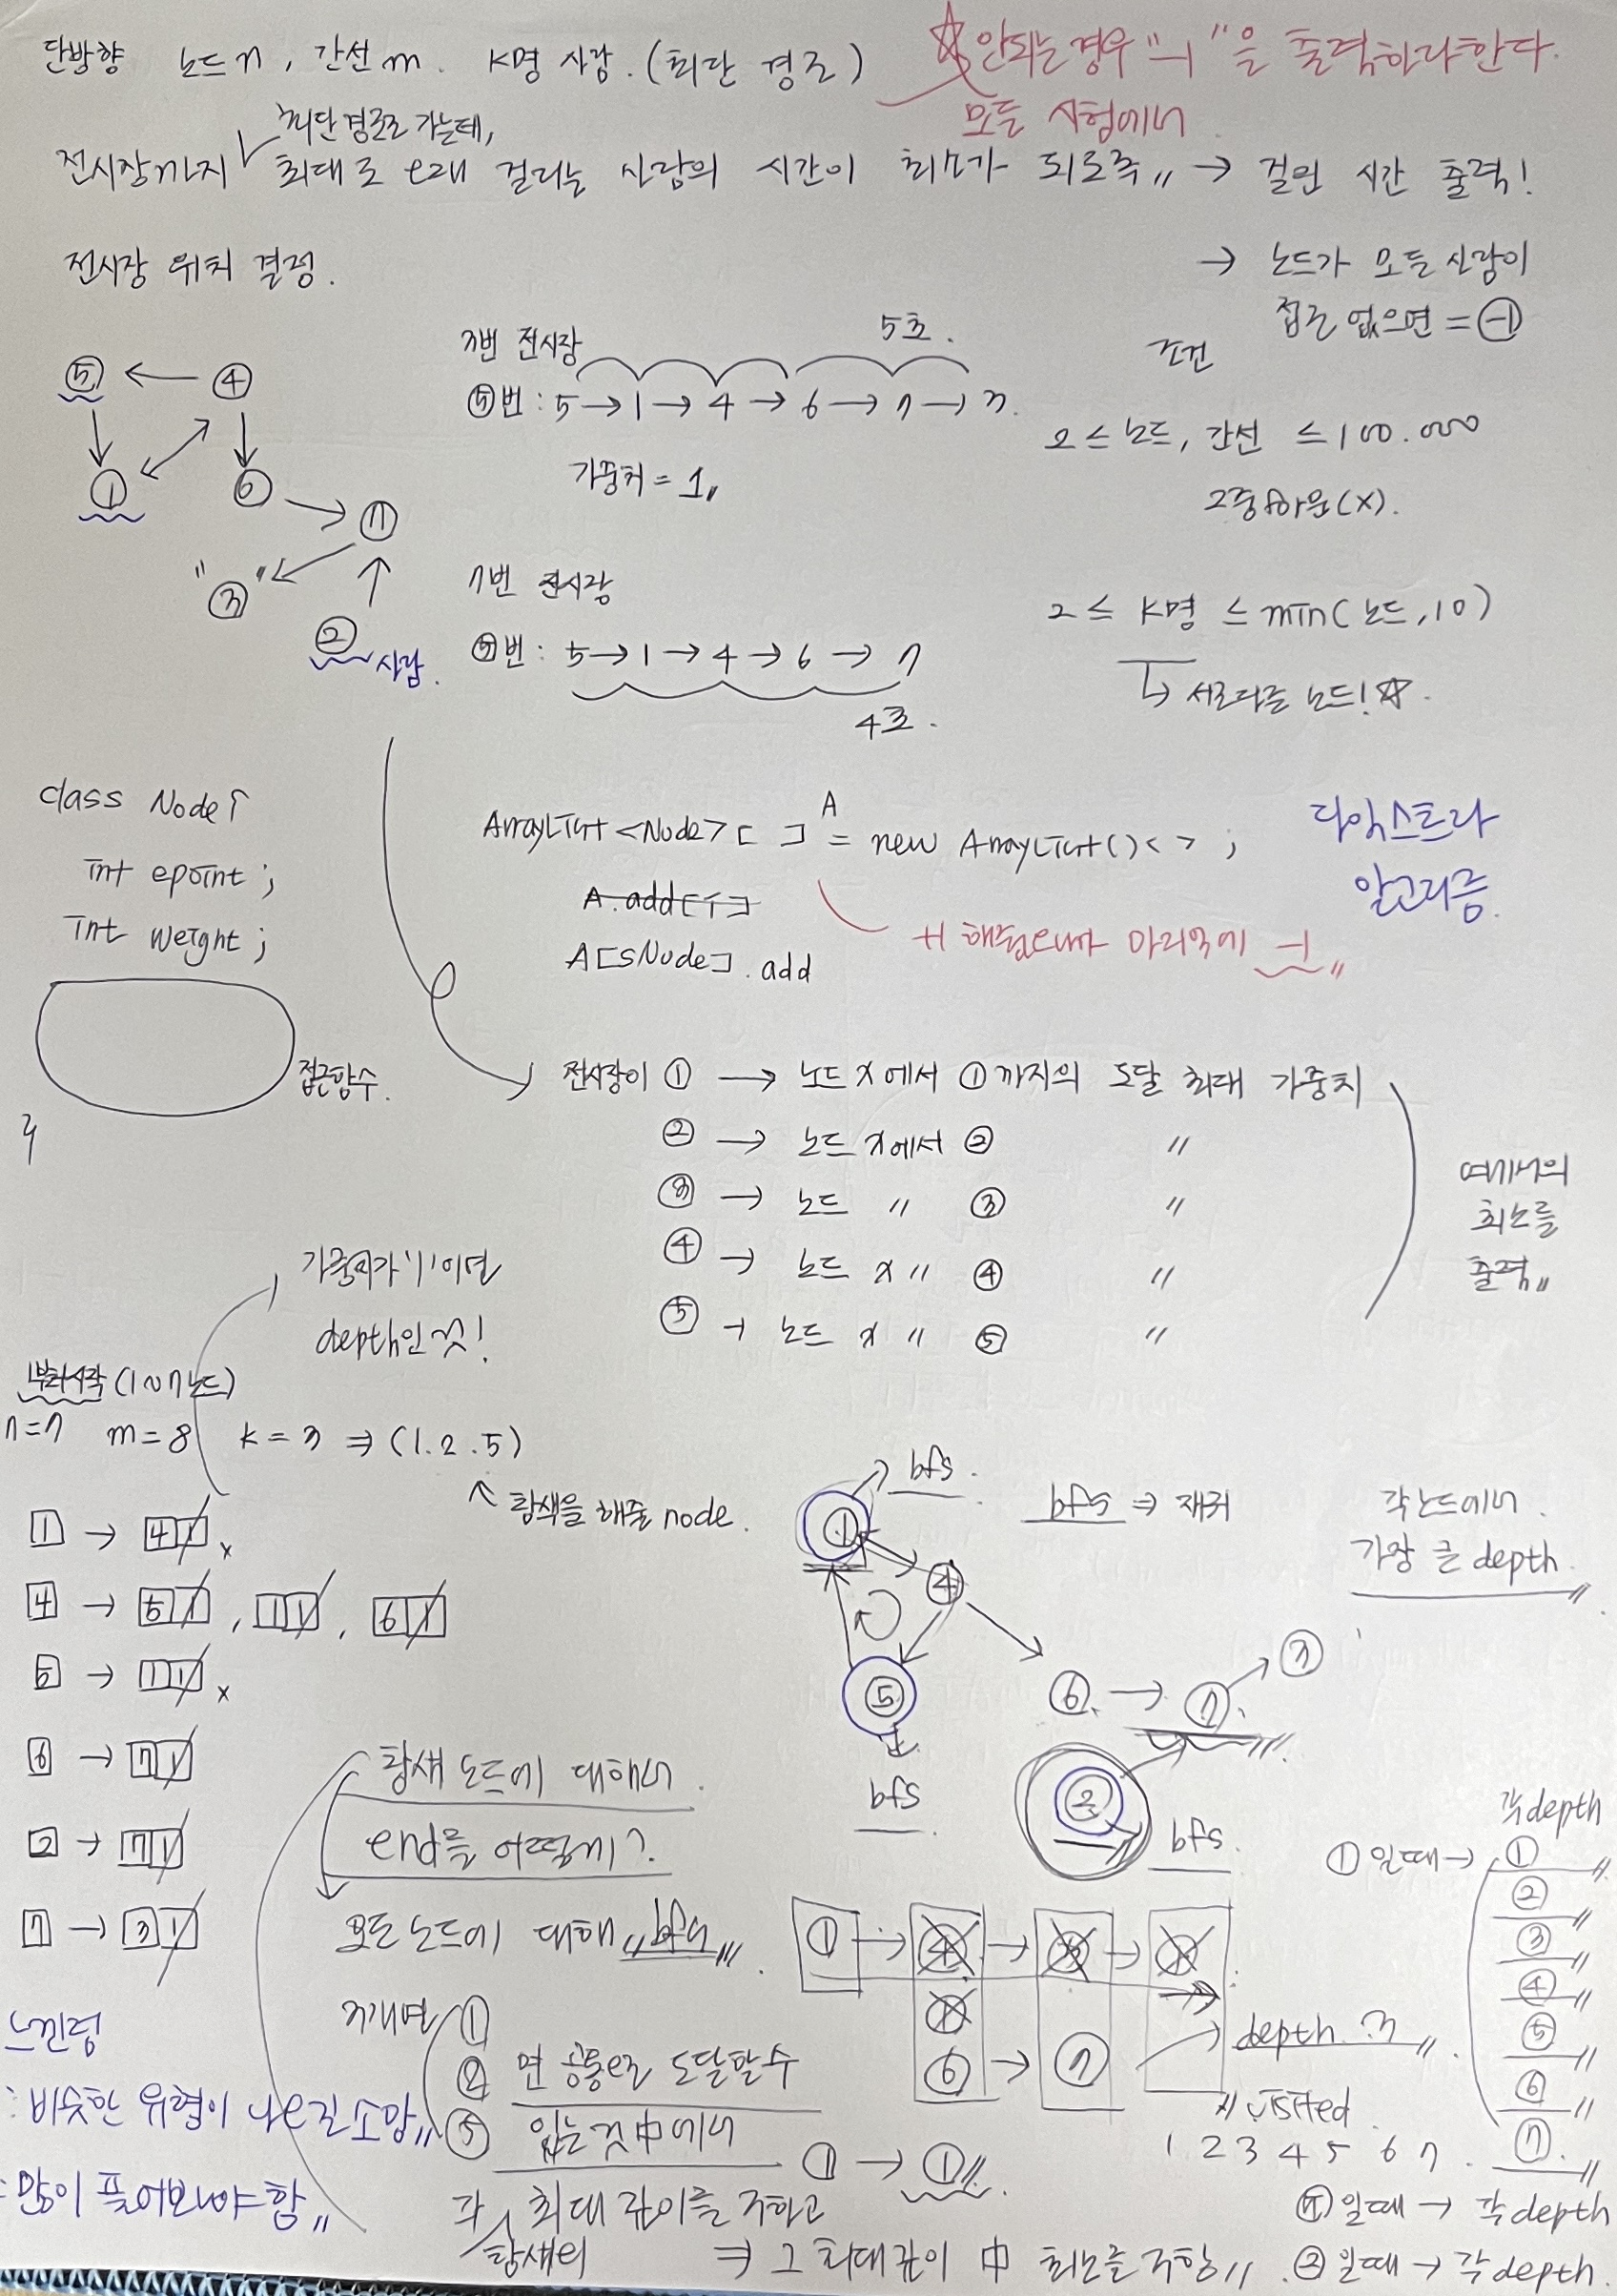 단방향 노드 n, 간선 m. K명 사람. (최단 경로)
☆ 안되는 경우 "-1"을 출력하라 한다.
모든 시험에서
최단경로로 가는데,
전시장까지 최대로 오래 걸리는 사람의 시간이 최소가 되도록〃 → 걸린 시간 출력!
전시장 위치 결정.
→ 노드가 모든 사람이
접근 없으면 = -1
⑤ ← ④
① ⑥ ⑦
"③"
② 사람.
3번 전시장
5초.
⑤번 : 5 → 1 → 4 → 6 → 7 → 3.
가중치 = 1〃
7번 전시장
⑤번 : 5 → 1 → 4 → 6 → 7
4초.
조건
2 ≤ 노드, 간선 ≤ 100.000
2중 for문(X).
2 ≤ K명 ≤ min(노드, 10)
↳ 서로다른 노드!☆.
class Node{
int epoint;
int weight;
접근함수.
}
ArrayList <Node> [ ] A = new ArrayList()< > ;
A.add[i]
A[sNode].add
+1 해줬으니까 마지막에 -1〃
다익스트라
알고리즘.
전시장이 ① → 노드 x에서 ①까지의 도달 최대 가중치
② → 노드 x에서 ② 〃
③ → 노드 〃 ③ 〃
④ → 노드 x 〃 ④ 〃
⑤ → 노드 x 〃 ⑤ 〃
여기서의
최소를
출력〃
가중치가 '1'이면
depth인 것!
(1~7 노드)
n=7 m=8 k=3 ⇒ (1.2.5)
↖ 탐색을 해줄 node.
1 → 4 1 x
4 → 5 1, 1 1, 6 1
5 → 1 1 x
6 → 7 1
2 → 7 1
7 → 3 1
① bfs.
④
⑤
bfs
⑥ → ⑦ ③
② bfs.
bfs ⇒ 재귀
각 노드에서.
가장 큰 depth.
탐색 노드에 대해서.
end를 어떻게?
모든 노드에 대해 〃bfs〃.
① → ④ → ⑤ → ①
①
⑥ → ⑦
depth 3〃.
visited
1 2 3 4 5 6 7.
각 depth
① 일때 → ①
②
③
④
⑤
⑥
⑦
3개면 ①
② 면 공통으로 도달할 수
⑤ 있는 것 中에서
① → ①〃.
각 최대 깊이를 구하고
탐색의
⇒ 그 최대 깊이 中 최소를 구함〃.
일때 → 각 depth
② 일때 → 각 depth
느낀점
: 비슷한 유형이 나오길 소망〃
: 많이 풀어봐야함〃